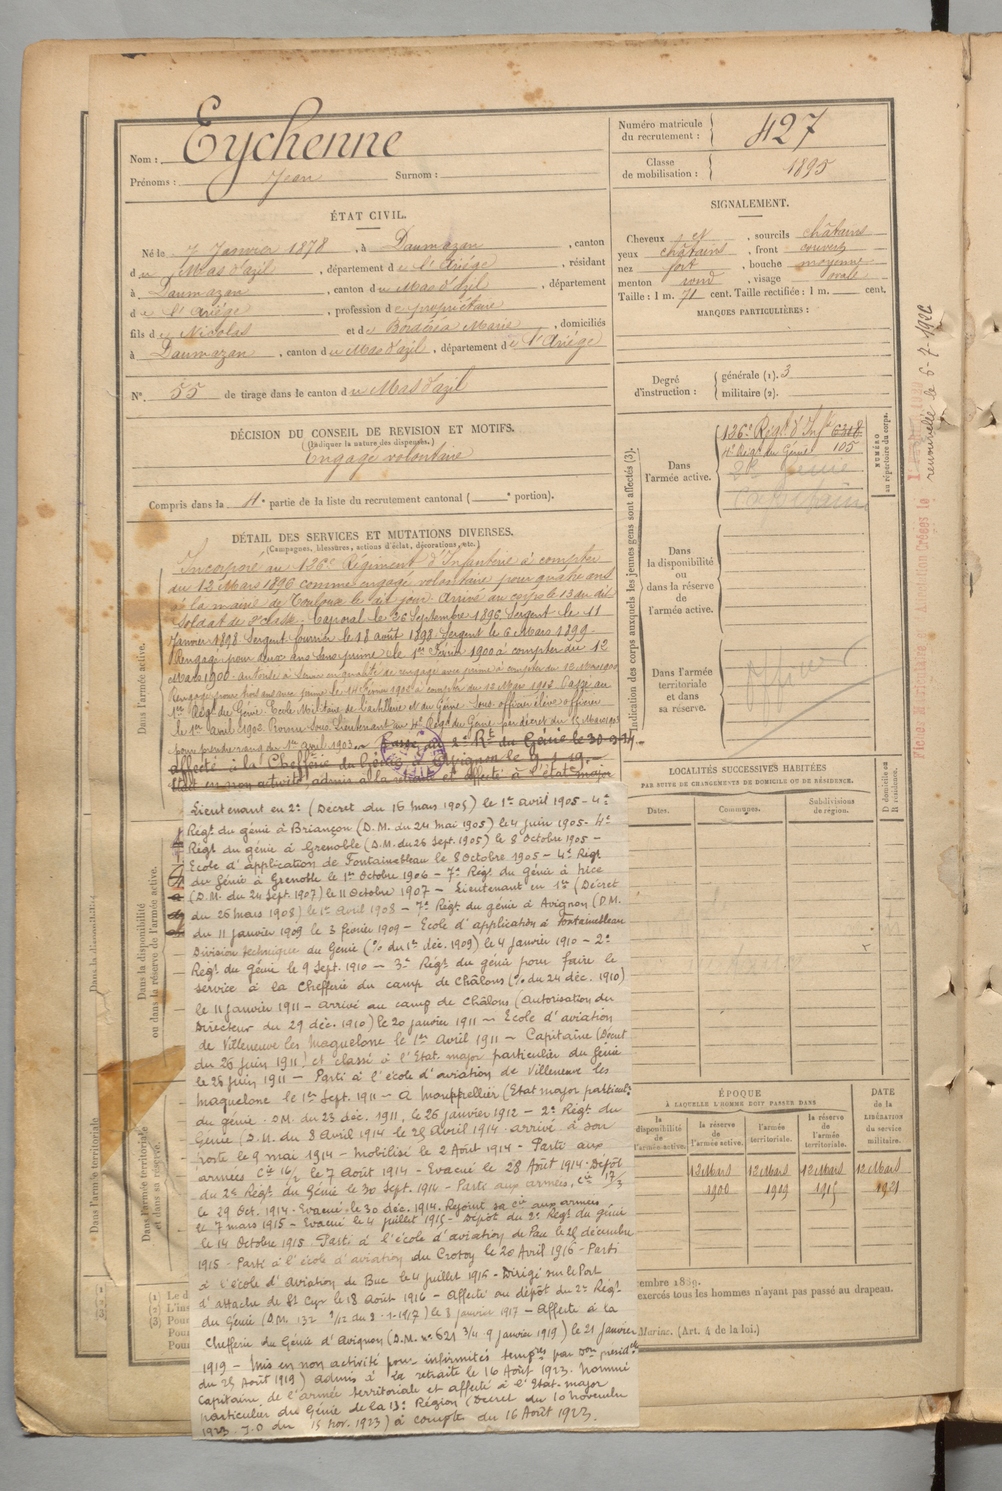 Nom : Eychenne
Prénoms : Jean Surnom :
Numéro matricule du recrutement : 427
Classe de mobilisation : 1895
ÉTAT CIVIL.
Né le 7 Janvier 1878, à Daumazan, canton
du Mas d'azil, département de l'Ariége, résidant
à Daumazan, canton du Mas d'azil, département
de l'Ariége, profession de propriétaire
fils de Nicolas et de Marie, domiciliés
à Daumazan, canton du Mas d'azil, département de l'Ariége
N° 55 de tirage dans le canton du Mas d'azil
SIGNALEMENT.
Cheveux et, sourcils châtains
yeux châtains, front couvert
nez fort, bouche moyenne
menton rond, visage ovale
Taille : 1 m. 71 cent. Taille rectifiée : 1 m. cent.
MARQUES PARTICULIÈRES :
Degré d'instruction : générale (1). 3
militaire (2).
DÉCISION DU CONSEIL DE REVISION ET MOTIFS.
(Indiquer la nature des dispenses.)
Engagé volontaire
Compris dans la 4e partie de la liste du recrutement cantonal ( e portion).
DÉTAIL DES SERVICES ET MUTATIONS DIVERSES.
(Campagnes, blessures, actions d'éclat, décorations, etc.)
Incorporé au 126e Régiment d'Infanterie à compter
du 12 Mars 1896 comme engagé volontaire pour quatre ans
à la mairie de Toulouse le dit jour. Arrivé au corps le 13 du dit
Soldat de 2e classe, Caporal le 26 Septembre 1896 Sergent le 11
Janvier 1898 Sergent fourrier le 18 août 1898 Sergent le 6 Mars 1899
Rengagé pour deux ans sans prime le 1er Février 1900 à compter du 12
Mars 1900
1er Régt du Génie. Ecole Militaire de Versailles Sous officier élève officier
le 1er avril 1902 Promu Sous Lieutenant au 4e Régt du Génie par décret du
pour prendre rang du 1er avril 1903. Passé au 2e Rt du Génie le 30-9-14
affecté à la Chefferie du Génie d'Avignon le 9-1-19.
Mis en non activité, admis à la retraite et affecté à l'état major
Lieutenant en 2e (Decret du 16 mars 1905) le 1er avril 1905 - 4e
Régt du génie à Briançon (D.M. du 24 mai 1905) le 4 juin 1905 - 4e
Régt du génie à Grenoble (D.M. du 26 Sept. 1905) le 8 Octobre 1905 -
Ecole d'application de Fontainebleau le 8 Octobre 1905 - 4e Régt
du Génie à Grenoble le 1er Octobre 1906 - 7e Régt du génie à Nice
(D.M. du 24 Sept. 1907) le 11 Octobre 1907 - Lieutenant en 1er (Décret
du 26 mars 1908) le 1er Avril 1908 - 7e Régt du génie à Avignon (D.M.
du 11 janvier 1909 le 3 février 1909 - Ecole d'application à Fontainebleau
Division technique du Génie (% du 1er déc. 1909) le 4 janvier 1910 - 2e
Régt du génie le 9 Sept. 1910 - 3e Régt du génie pour faire le
service à la Chefferie du camp de Châlons (% du 24 déc. 1910)
le 11 janvier 1911 - arrivé au camp de Châlons (autorisation du
Directeur du 29 déc. 1910) le 20 janvier 1911 - Ecole d'aviation
de Villeneuve les Maguelone le 1er Avril 1911 - Capitaine (Décret
du 26 juin 1911) et classé à l'Etat major particulier du Génie
le 26 juin 1911 - Parti à l'école d'aviation de Villeneuve les
Maguelone le 1er Sept. 1911 - A Montpellier (Etat major particuler
du génie. DM. du 23 déc. 1911, le 26 janvier 1912 - 2e Régt du
Génie (D.M. du 8 Avril 1914 le 25 avril 1914. arrivé à son
poste le 9 mai 1914 - Mobilisé le 2 Août 1914 - Parti aux
armées Cie 16/2 le 7 août 1914 - Evacué le 28 Août 1914 - Dépôt
du 2e Régt du Génie le 30 Sept. 1914 - Parti aux armées, Cie 17/3
le 29 Oct. 1914 - Evacué le 30 déc. 1914. Rejoint sa Cie aux armées
le 7 mars 1915 - Evacué le 4 juillet 1915 - Dépôt du 2e Régt du génie
le 14 Octobre 1915 Parti à l'école d'aviation de Pau le 25 décembre
1915 - Parti à l'école d'aviation du Crotoy le 20 Avril 1916 - Parti
à l'école d'Aviation de Buc le 4 juillet 1916 - Dirigé sur le Port
d'attache de St Cyr le 18 Août 1916 - Affecté au dépôt du 2e Régt
du Génie (D.M. 132 9/12 du 8-1-1917) le 8 janvier 1917 - Affecté à la
Chefferie du Génie d'Avignon (D.M. n° 621 3/4 9 janvier 1919) le 21 janvier
1919 - Mis en non activité pour infirmités tempres par Don présidlle
du 25 Août 1919) admis à la retraite le 16 Août 1923. Nommé
Capitaine de l'armée territoriale et affecté à l'Etat-major
particulier du Génie de la 13e Région (Décret du 10 novembre
1923 J.O du 15 nov. 1923) à compter du 16 Août 1923.
Dans l'armée active.
Dans la disponibilité ou dans la réserve de l'armée active.
Dans l'armée territoriale et dans sa réserve.
Indication des corps auxquels les jeunes gens sont affectés (3).
NUMÉRO au répertoire du corps.
Dans l'armée active.
126e Régt d'Infie 6318
4e Régt du Génie 105
2e Génie
Capitaine
Dans la disponibilité ou dans la réserve de l'armée active.
Dans l'armée territoriale et dans sa réserve.
officier
renouvelée le 6-7-1926
LOCALITÉS SUCCESSIVES HABITÉES
PAR SUITE DE CHANGEMENTS DE DOMICILE OU DE RÉSIDENCE.
Dates. Communes. Subdivisions de région. D domicile ou R résidence.
ÉPOQUE
À LAQUELLE L'HOMME DOIT PASSER DANS
la disponibilité de l'armée active. la réserve de l'armée active. l'armée territoriale. la réserve de l'armée territoriale.
DATE de la LIBÉRATION du service militaire.
12 Mars 1900
12 Mars 1909
12 Mars 1915
12 Mars 1921
cembre 1889.
exercés tous les hommes n'ayant pas passé au drapeau.
Marine. (Art. 4 de la loi.)